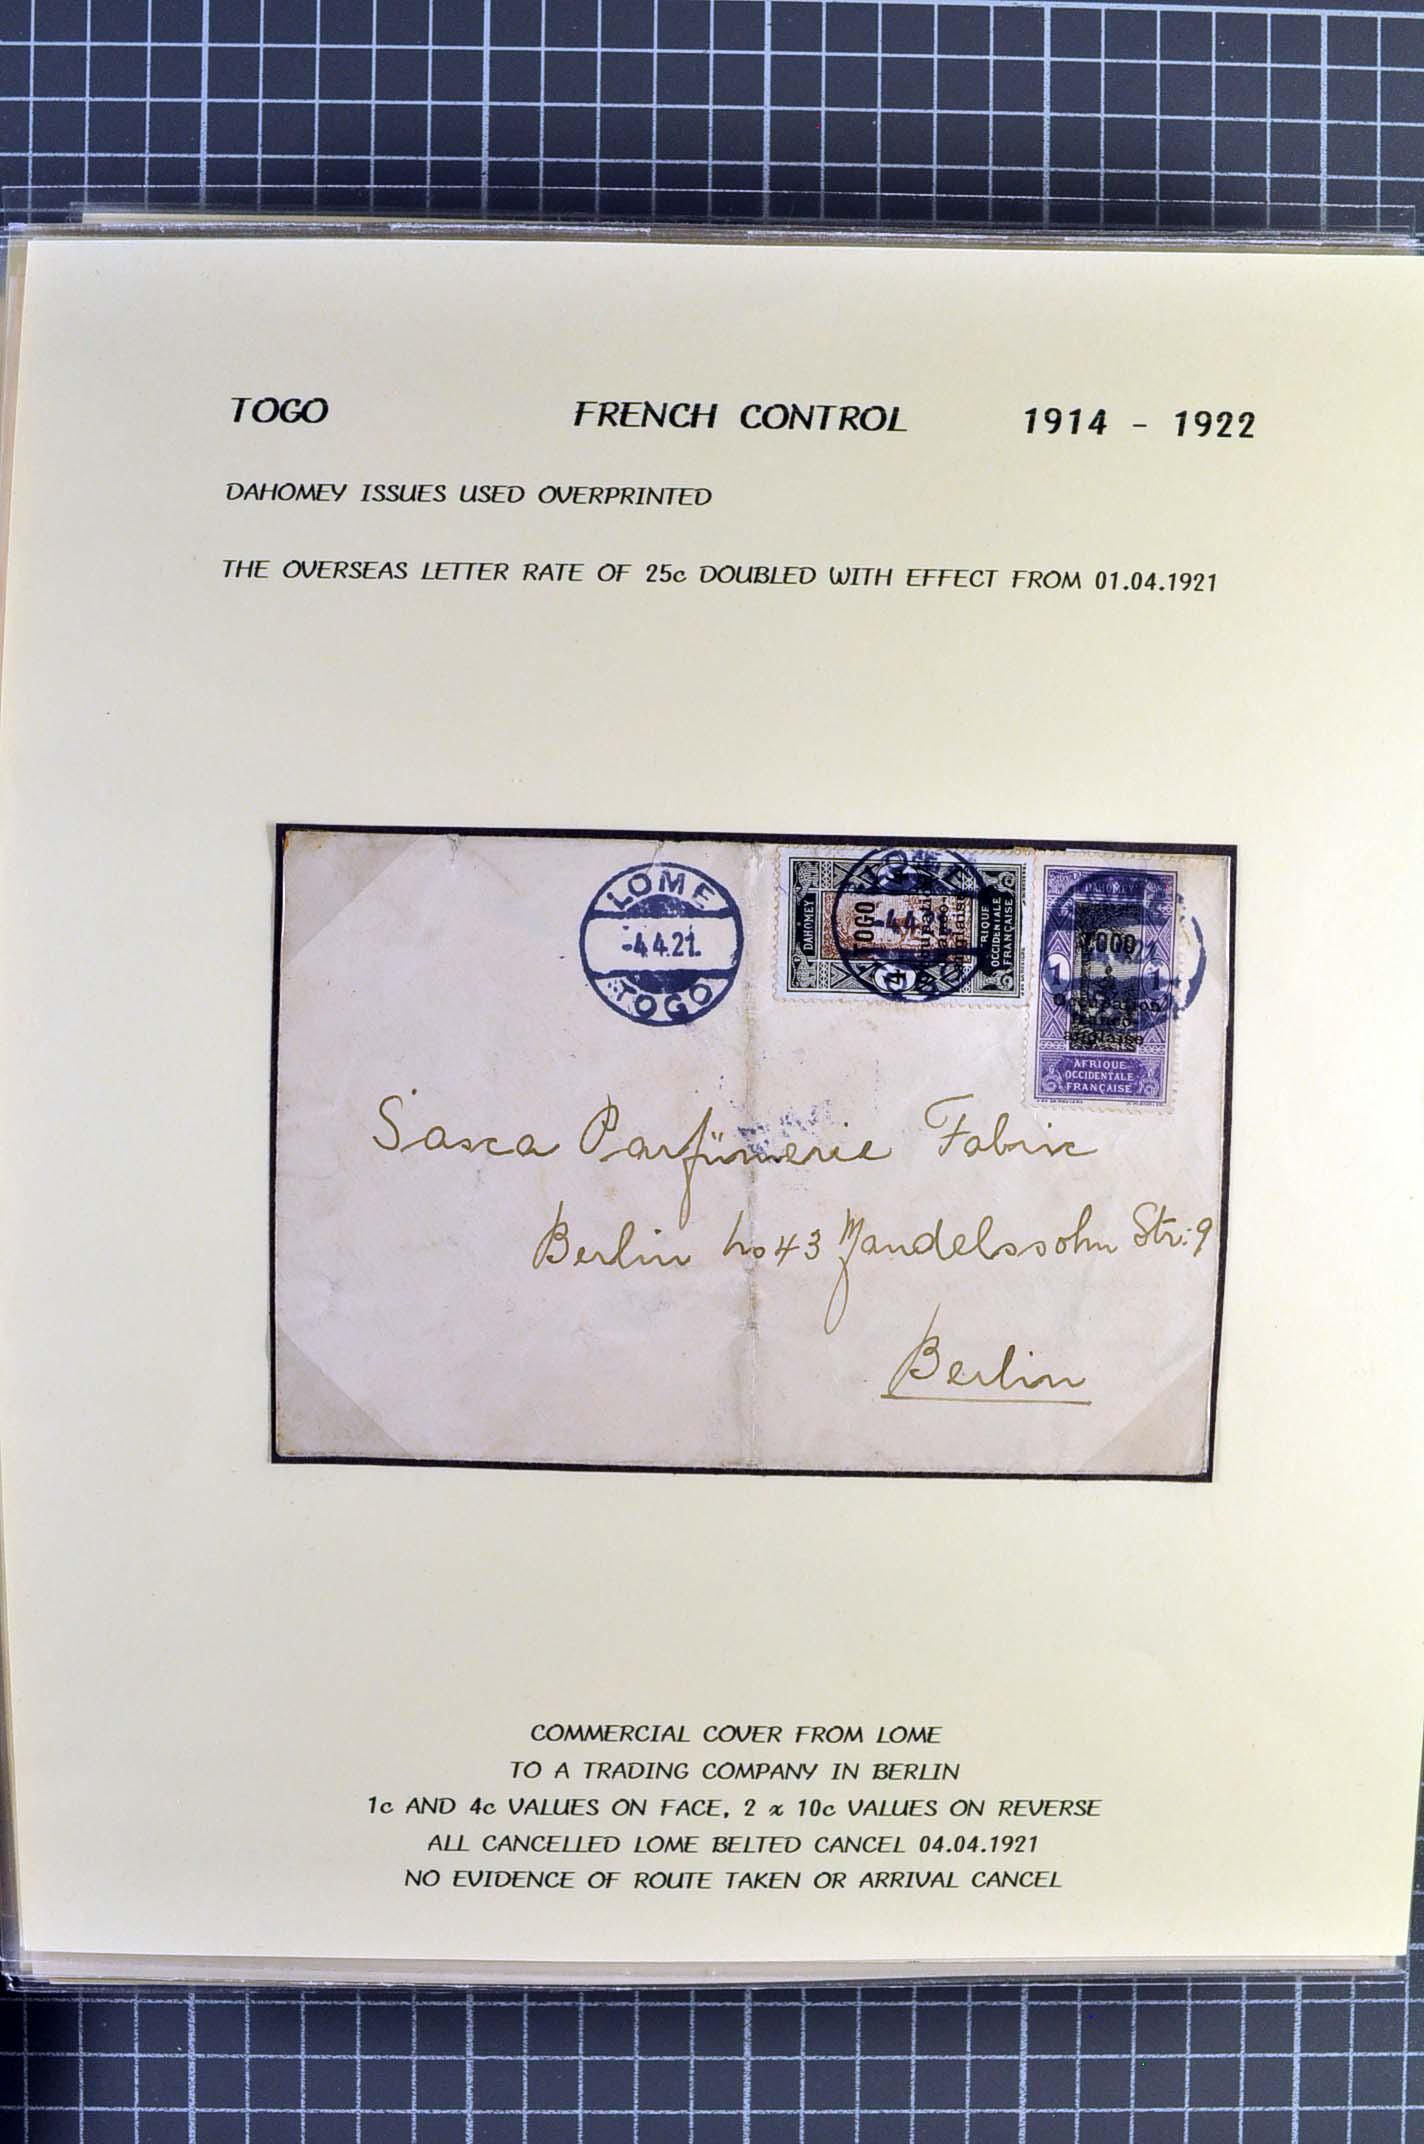 TOGO FRENCH CONTROL 1914 - 1922
DAHOMEY ISSUES USED OVERPRINTED
THE OVERSEAS LETTER RATE OF 25c DOUBLED WITH EFFECT FROM 01.04.1921
LOME
-4.4.21.
TOGO
DAHOMEY
TOGO
Occupation
franco-
anglaise
4
OCCIDENTALE
FRANÇAISE
LOME
DAHOMEY
TOGO
1 1
Occupation
franco-
anglaise
AFRIQUE
OCCIDENTALE
FRANÇAISE
Sasca Parfümerie Fabric
Berlin No 43 Mandelssohn Str: 9
Berlin
COMMERCIAL COVER FROM LOME
TO A TRADING COMPANY IN BERLIN
1c AND 4c VALUES ON FACE, 2 x 10c VALUES ON REVERSE
ALL CANCELLED LOME BELTED CANCEL 04.04.1921
NO EVIDENCE OF ROUTE TAKEN OR ARRIVAL CANCEL